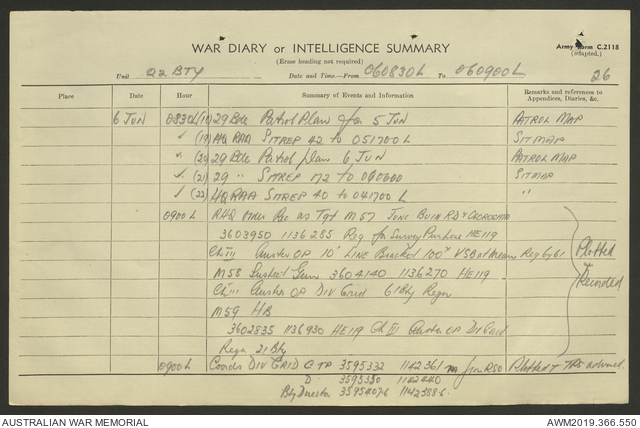 WAR DIARY or INTELLIGENCE SUMMARY
Army Form C.2118
(Erase heading not required)
(adapted.)
Unit 22 BTY Date and Time—From 060830L To 060900L
26
Place Date Hour Summary of Events and Information Remarks and references to Appendices, Diaries, &c.
6 JUN 0830L (18) 29 Bde Patrol Plan for 5 JUN PATROL MAP
" (19) HQ RAA SITREP 42 to 051700L SITMAP
" (20) 29 Bde Patrol plan 6 JUN PATROL MAP
" (21) 29 " SITREP 172 to 060600 SITMAP
" (22) HQ RAA SITREP 40 to 041700L "
0900L RHQ Rec as Tgt M57 Junc BUIN RD &
3603950 1136285 Reg for Survey Purpose HE119
Ch III Auster OP 10° LINE Bracket 100x Reg by 61 Plotted
M58 Suspect Gun 3604140 1136270 HE119 &
Ch III Auster OP DIV Grid 61 Bty Regn Recorded
M59 HB
3602835 1136930 HE119 Ch III Auster OP Div Grid
Regn 21 Bty
0900L Coords DIV GRID C TP 3595332 1142361 from RSO Plotted &
D 3595350 1142440
Bty Director
AUSTRALIAN WAR MEMORIAL
AWM2019.366.550